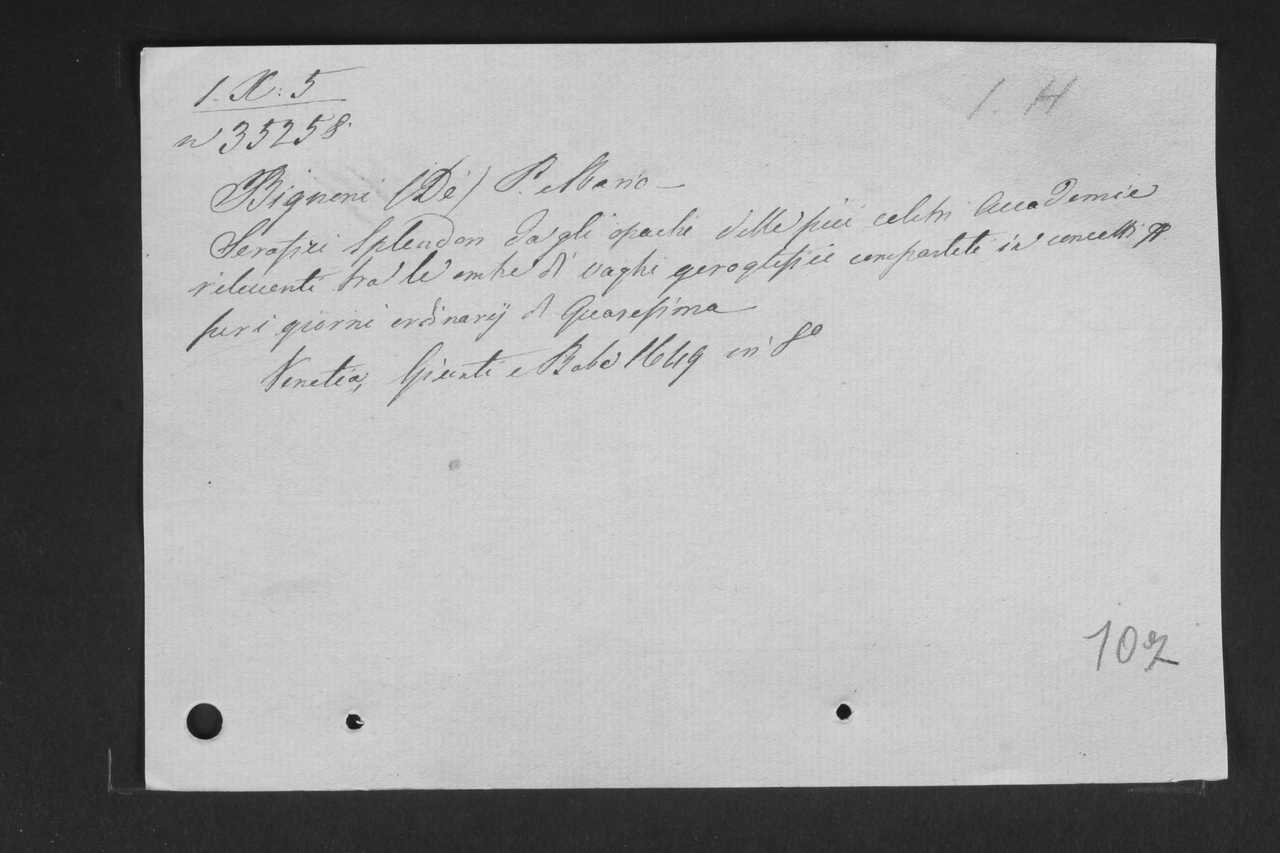 1. X: 5
1. H
n 35258.
Bignoni (De) P. Mario —
Serafici Splendori dagli opachi delle piu celebri Accademie
rilucenti tra le ombre di vaghi geroglifici compartiti in concetti pp.
per i giorni ordinarij di Quaresima —
Venetia, Giunti e Baba 1649 in 8º
102